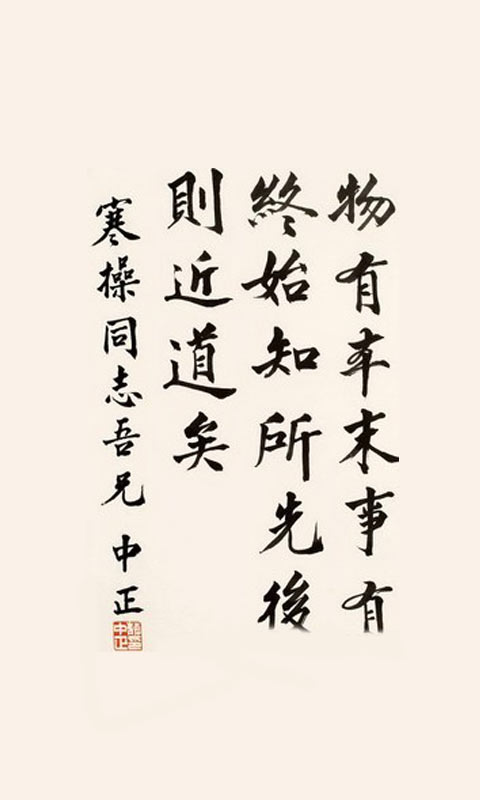 物有本末事有
終始知所先後
則近道矣
寒操同志吾兄 中正